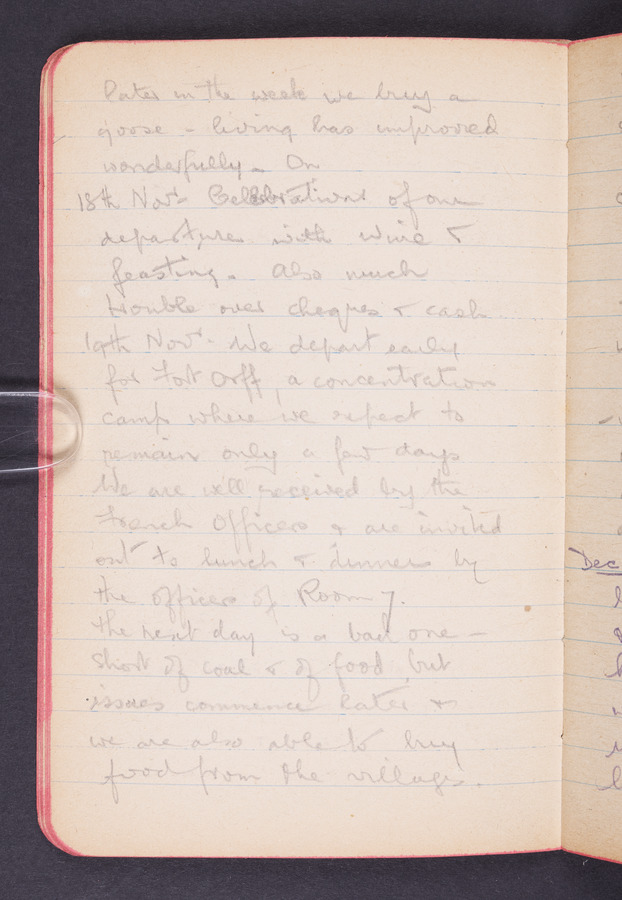 later in the week we buy a
goose - living has improved
wonderfully - On
18th Novr - Celebrations of our
departure with wine &
feasting. Also much
trouble over cheques & cash
19th Novr - We depart early
for Fort Orff, a concentration
camp where we expect to
remain only a few days
We are well received by the
French Officers & are invited
out to lunch & dinner by
the officers of Room 7.
The next day is a bad one -
Short of coal & of food, but
issues commence later &
we are also able to buy
food from the village.
Dec